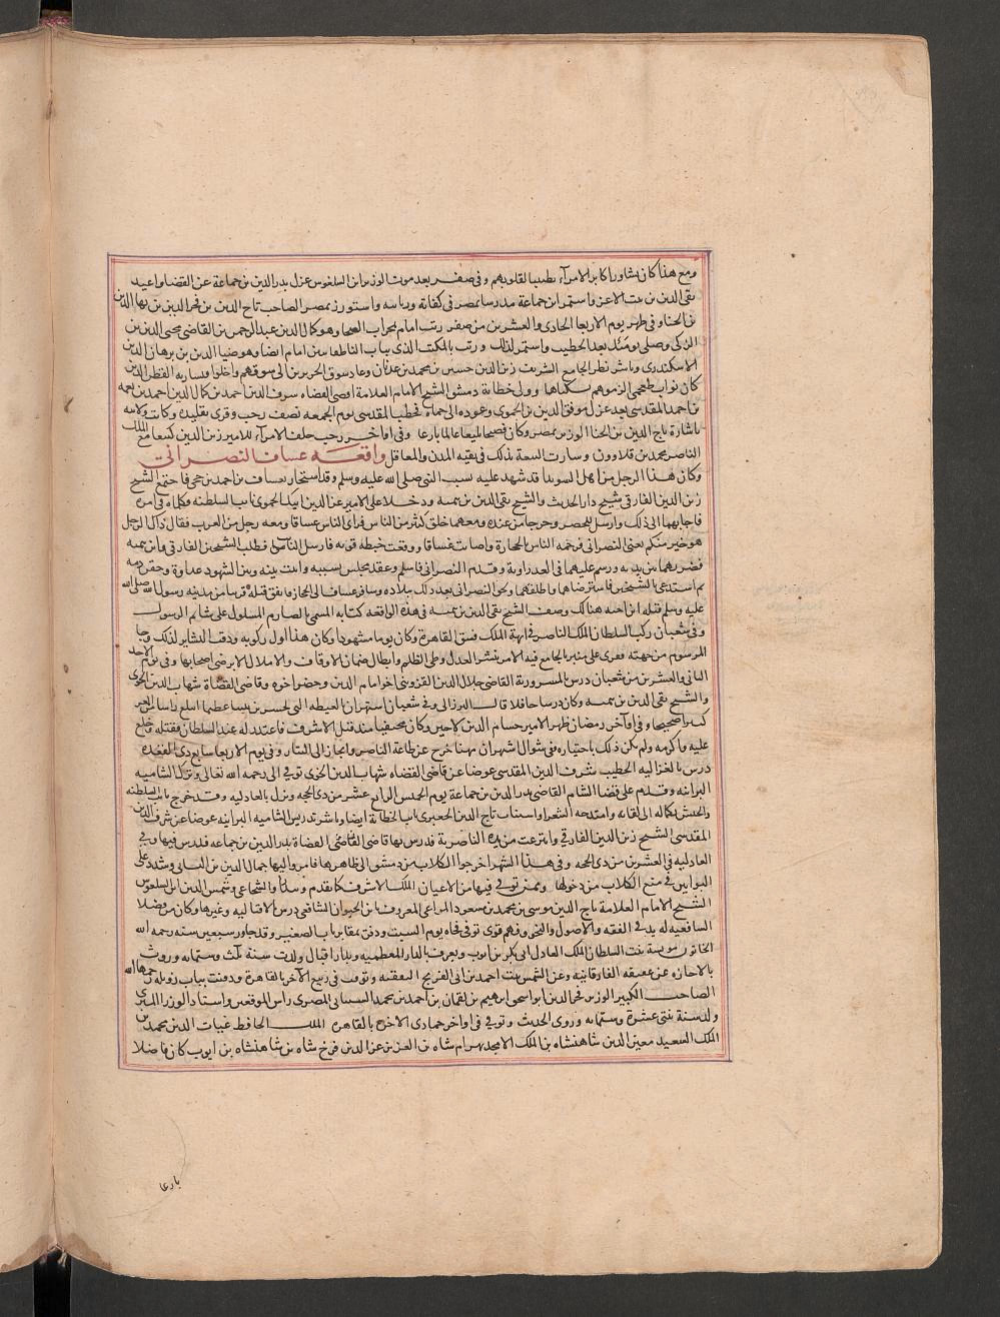 ومع هذا كان يشاور اكابر الامرآء تطييبا لقلوبهم وفي صفر بعد موت الوزير ابن السلعوس عزل بدر الدين بن جماعة عن القضا واعيد
تقي الدين بن بنت الاعز واستمر ابن جماعة مدرسا بمصر في كفاية ورياسه واستوزر بمصر الصاحب تاج الدين بن فخر الدين بن بها الدين
بن الحنا وفي ظهر يوم الاربعا الحادي والعشرين من صفر رتب امام بمحراب الصحابه وهو كمال الدين عبد الرحمن بن القاضي محيي الدين بن
الزكي وصلى يومئذ بعد الخطيب واستمر لذلك ورتب بالمكتب الذي بباب الناطفانيين امام ايضا وهو ضيا الدين بن برهان الدين
الاسكندري وباشر نظر الجامع الشريف زين الدين حسين بن محمد بن عدنان وعاد سوق الحريريين الى سوقهم واخلوا قيساريه القطن الذي
كان نواب طغجي الزموهم بسكناها وولي خطابة دمشق الشيخ الامام العلامة اقضى القضاه شرف الدين احمد بن كمال الدين احمد بن نعمه
بن احمد المقدسي بعد عزل موفق الدين بن الحموي وعوده الى حماه فخطب المقدسي يوم الجمعه نصف رجب وقرى تقليده وكانت ولايته
باشارة تاج الدين بن الحنا الوزير بمصر وكان فصيحا بليغا عالما بارعا وفي اواخر رجب حلف الامرآء للامير زين الدين كتبغا مع الملك
الناصر محمد بن قلاوون وسارت البيعة بذلك في بقيه المدن والمعاقل واقعه عساف النصراني
وكان هذا الرجل من اهل السويدا قد شهد عليه بسبب النبي صلى الله عليه وسلم وقد استجار بعساف بن احمد بن حجي فاجتمع الشيخ
زين الدين الفارقي شيخ دار الحديث والشيخ تقي الدين بن تيمية ودخلا على الامير عز الدين ايبك الحموي نايب السلطنه وكلماه في امره
فاجابهما الى ذلك وارسل ليحضر وخرجا من عنده ومعهما خلق كثير من الناس فراى الناس عسافا ومعه رجل من العرب فقال ذاك الرجل
هو خير منكم يعني النصراني فرجمه الناس بالحجارة واصابت عسافا ووقعت خبطه قويه فارسل النايب فطلب الشيخين الفارقي وابن تيمية
فضربهما بين يديه ورسم عليهما في العدراويه وقدم النصراني فاسلم وعقد مجلس بسببه واثبت بينه وبين الشهود عداوة وحقن دمه
ثم استدعى بالشيخين فاسترضاهما واطلقهما ولحق النصراني بعد ذلك ببلاده وسافر عساف الى الحجاز فاتفق قتله قريبا من مدينه رسول الله صلى الله
عليه وسلم قتله ابن اخيه هنالك وصنف الشيخ تقي الدين بن تيمية في هذه الواقعه كتابه المسمى بالصارم المسلول على شاتم الرسول
وفي شعبان ركب السلطان الملك الناصر في ابهة الملك فشق القاهرة وكان يوما مشهودا وكان هذا اول ركوبه ودقت البشاير لذلك وجا
المرسوم من جهته فقرى على منبر بالجامع فيه الامر بنشر العدل وطي الظلم وابطال ضمان الاوقاف والاملاك الا برضى اصحابها وفي يوم الاحد
الثاني والعشرين من شعبان درس بالمسرورية القاضي جلال الدين القزويني اخو امام الدين وحضر اخوه وقاضي القضاة شهاب الدين الخوي
والشيخ تقي الدين بن تيمية وكان درسا حافلا قال البرزالي وفي شعبان اشتهر ان الغيطه التي بجسرين تنينا عظيما ابتلع راسا من المعز
كبيرا صحيحا وفي اوآخر رمضان ظهر الامير حسام الدين لاجين وكان مختفيا منذ قتل الاشرف فاعتذر له عند السلطان فقبله وخلع
عليه واكرمه ولم يكن ذلك باختياره وفي شوال اشتهر ان مهنا خرج عن طاعة الناصر وانحاز الى التتار وفي يوم الاربعا سابع ذي القعده
درس بالغزاليه الخطيب شرف الدين المقدسي عوضا عن قاضي القضاه شهاب الدين الخوي توفي الى رحمه الله تعالى وترك الشاميه
البرانيه وقدم على قضا الشام القاضي بدر الدين بن جماعة يوم الخميس الرابع عشر من ذي الحجه ونزل بالعادليه وقد خرج نايب السلطنه
والجيش بكماله الى لقايه وامتدحه الشعرا واستناب تاج الدين الجعبري نايب الخطابة ايضا وباشر تدريس الشاميه البرانيه عوضا عن شرف الدين
المقدسي الشيخ زين الدين الفارقي وانتزعت من يده الناصرية فدرس بها قاضي القضاة بدر الدين بن جماعه فدرس فيها وفي
العادليه في العشرين من ذي الحجه وفي هذا الشهر اخرجوا الكلاب من دمشق الى ظاهرها فامر واليها جمال الدين بن وشدد على
البوابين في منع الكلاب من دخولها وممن توفي فيها من الاعيان الملك الاشرف كما تقدم والشجاعي وشمس الدين ابن السلعوس
الشيخ الامام العلامة تاج الدين موسى بن محمد بن مسعود المراغي المعروف بابن الحيوان الشافعي درس الاقباليه وغيرها وكان من فضلا
الشافعيه له يد في الفقه والاصول والنحو وفهم قوي توفي فجاه يوم السبت ودفن بمقابر باب الصغير وقد جاوز سبعين سنه رحمه الله
الخاتون مونسة بنت السلطان الملك العادل ابي بكر بن ايوب وتعرف بالدار القطبيه وبدار اقبال ولدت سنة ثلث وستمايه وروت
بالاجازه عن عفيفه الفارقانيه وعن الشمس بنت احمد بن ابي الفرج الثقفيه وتوفيت في ربيع الآخر بالقاهرة ودفنت بباب زويله رحمها الله
الصاحب الكبير الوزير فخر الدين ابو اسحق ابرهيم بن لقمان بن احمد بن محمد الشيباني المصري راس الموقعين واستاد الوزرا
ولد سنة ثنتي عشرة وستمايه وروى الحديث وتوفي في اواخر جمادي الاخرة بالقاهره الملك الحافظ غياث الدين محمد بن
الملك السعيد معين الدين شاهنشاه بن الملك الامجد بهرام شاه بن العز بن عز الدين فرخ شاه بن شاهنشاه بن ايوب كان فاضلا
بارعا